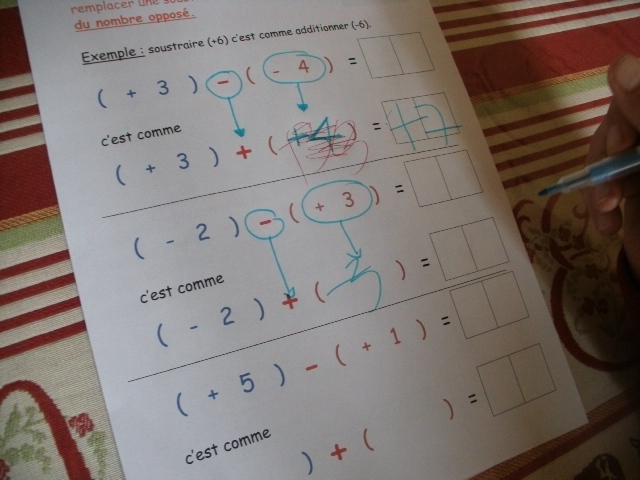 remplacer une
du nombre opposé.
Exemple : soustraire (+6) c'est comme additionner (-6).
( + 3 ) - ( - 4 ) =
c'est comme
( + 3 ) + ( ) =
( - 2 ) - ( + 3 ) =
c'est comme
( - 2 ) + ( ) =
( + 5 ) - ( + 1 ) =
c'est comme
) + ( ) =